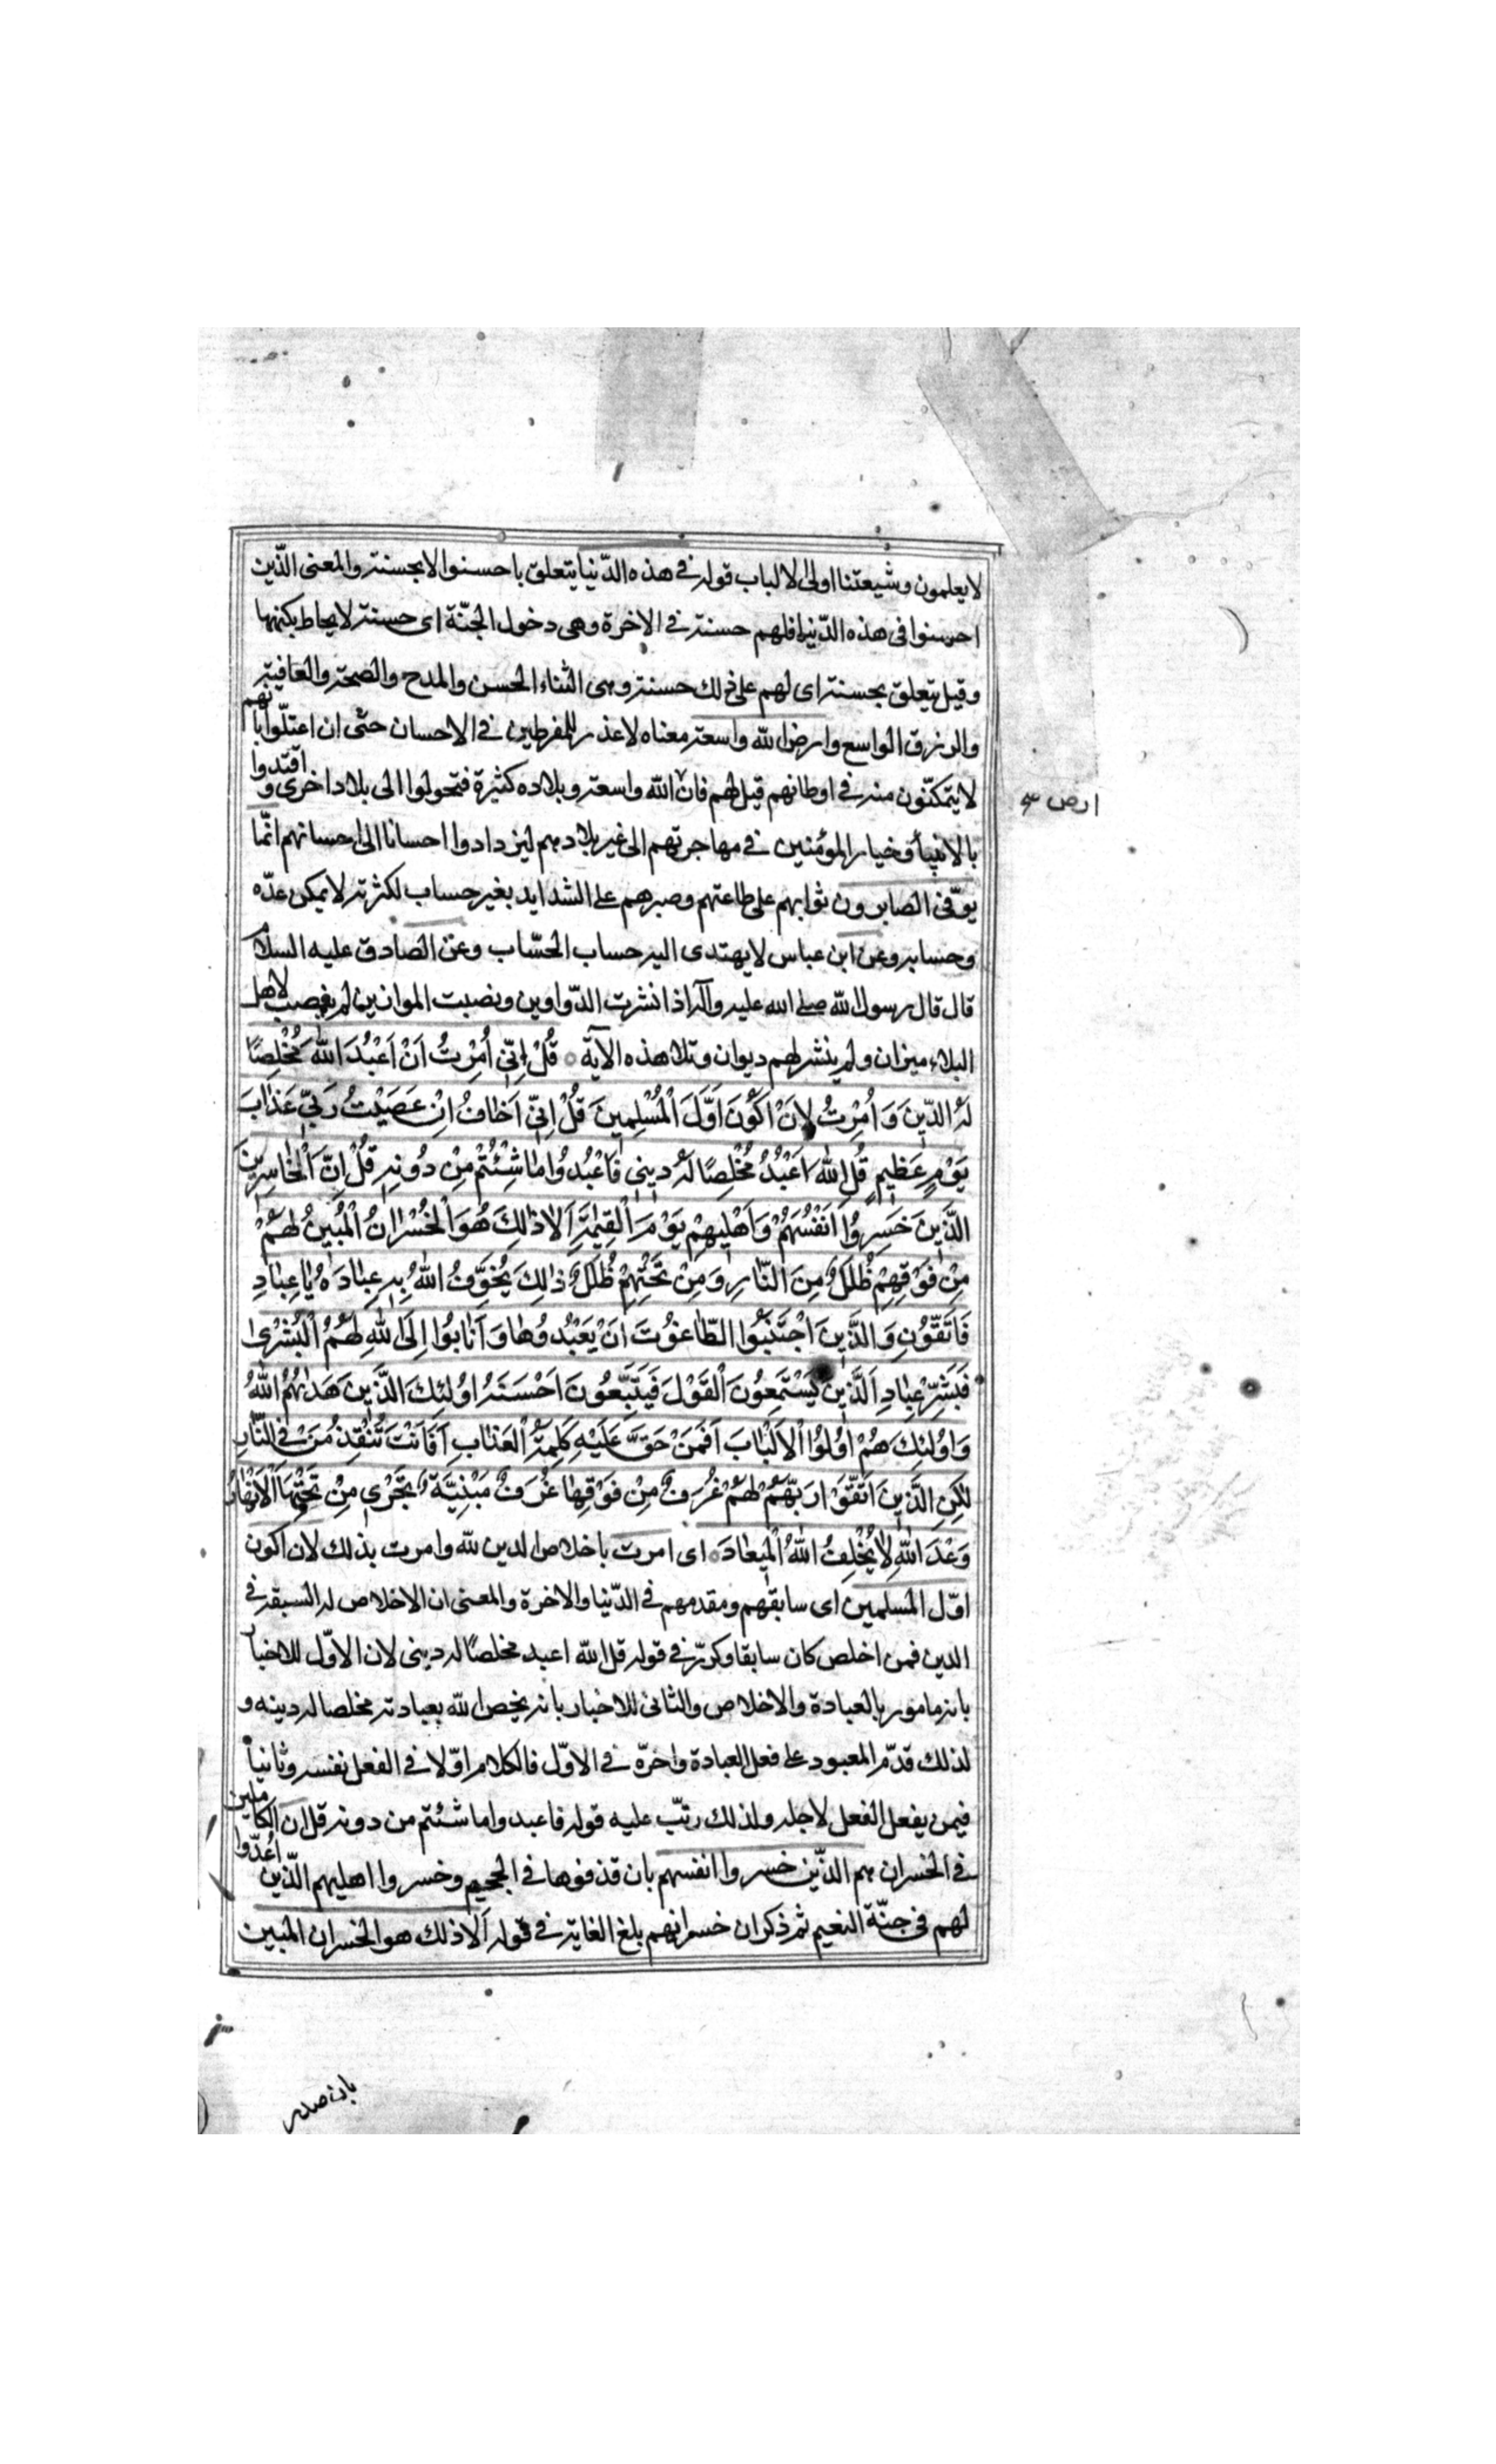 لا يعلمون وشيعتنا اولى الالباب قوله فى هذه الدّنيا يتعلق باحسنوا لا بحسنة والمعنى الّذين
احسنوا فى هذه الدّنيا فلهم حسنة فى الاخرة وهى دخول الجنّة اى حسنة لا يحاط بكنهها
وقيل يتعلق بحسنة اى لهم على ذلك حسنة وهى الثناء الحسن والمدح والصحة والعافية
والرزق الواسع وارض الله واسعة معناه لا عذر للمفرطين فى الاحسان حتّى ان اعتلّوا بانهم
لا يتمكنّون منه فى اوطانهم قيل لهم فانّ الله واسعة وبلاده كثيرة فتحولوا الى بلاد اخرى واقتدوا
ارض
بالانبيأ وخيار المؤمنين فى مهاجرتهم الى غير بلادهم ليزدادوا احسانا الى احسانهم انّما
يوفّى الصابرون ثوابهم على طاعتهم وصبرهم على الشدايد بغير حساب لكثرته لا يمكن عدّه
وحسابه وعن ابن عباس لا يهتدى اليه حساب الحسّاب وعن الصادق عليه السلام
قال قال رسول الله صلى الله عليه وآله اذا نشرت الدّواوين ونصبت الموازين لم ينصب لاهل
البلاء ميزان ولم ينشر لهم ديوان وتلا هذه الآية قُلْ اِنّى اُمِرْتُ اَنْ اَعْبُدَ اللّٰهَ مُخْلِصًا
لَهُ الدّينَ وَ اُمِرْتُ لِاَنْ اَكُونَ اَوَّلَ الْمُسْلِمينَ قُلْ اِنّى اَخٰافُ اِنْ عَصَيْتُ رَبّى عَذٰابَ
يَوْمٍ عَظيمٍ قُلِ اللّٰهَ اَعْبُدُ مُخْلِصًا لَهُ دينى فَاعْبُدُوا مٰا شِئْتُمْ مِنْ دُونِهِ قُلْ اِنَّ الْخٰاسِرينَ
الَّذينَ خَسِرُوا اَنْفُسَهُمْ وَ اَهْليهِمْ يَوْمَ الْقِيٰمَةِ اَلٰا ذٰلِكَ هُوَ الْخُسْرٰانُ الْمُبينُ لَهُمْ
مِنْ فَوْقِهِمْ ظُلَلٌ مِنَ النّٰارِ وَ مِنْ تَحْتِهِمْ ظُلَلٌ ذٰلِكَ يُخَوِّفُ اللّٰهُ بِهِ عِبٰادَهُ يٰا عِبٰادِ
فَاتَّقُونِ وَ الَّذينَ اجْتَنَبُوا الطّٰاغُوتَ اَنْ يَعْبُدُوهٰا وَ اَنٰابُوا اِلَى اللّٰهِ لَهُمُ الْبُشْرٰى
فَبَشِّرْ عِبٰادِ اَلَّذينَ يَسْتَمِعُونَ الْقَوْلَ فَيَتَّبِعُونَ اَحْسَنَهُ اُولٰئِكَ الَّذينَ هَدٰيهُمُ اللّٰهُ
وَ اُولٰئِكَ هُمْ اُولُوا الْاَلْبٰابِ اَفَمَنْ حَقَّ عَلَيْهِ كَلِمَةُ الْعَذٰابِ اَفَاَنْتَ تُنْقِذُ مَنْ فِى النّٰارِ
لٰكِنِ الَّذينَ اتَّقَوْا رَبَّهُمْ لَهُمْ غُرَفٌ مِنْ فَوْقِهٰا غُرَفٌ مَبْنِيَّةٌ تَجْرى مِنْ تَحْتِهَا الْاَنْهٰارُ
وَعْدَ اللّٰهِ لٰا يُخْلِفُ اللّٰهُ الْميعٰادَ اى امرت باخلاص الدين لله وامرت بذلك لان اكون
اوّل المسلمين اى سابقهم ومقدمهم فى الدّنيا والاخرة والمعنى ان الاخلاص له السبقة فى
الدين فمن اخلص كان سابقا وكرّر فى قوله قل الله اعبد مخلصًا له دينى لان الاوّل للاخبار
بانه مامور بالعبادة والاخلاص والثانى للاخبار بانه يخص الله بعبادته مخلصا له دينه و
لذلك قدّم المعبود على فعل العبادة واخرّه فى الاوّل فالكلام اوّلا فى الفعل نفسه وثانياً
فيمن يفعل الفعل لاجله ولذلك رتّب عليه قوله فاعبدوا ما شئتم من دونه قل ان الكاملين
فى الخسران هم الذّين خسروا انفسهم بان قذفوها فى الجحيم وخسروا اهليهم الذّين اعُدّوا
لهم فى جنّة النعيم ثم ذكر ان خسرانهم بلغ الغاية فى قوله اَلا ذلك هو الخسران المبين